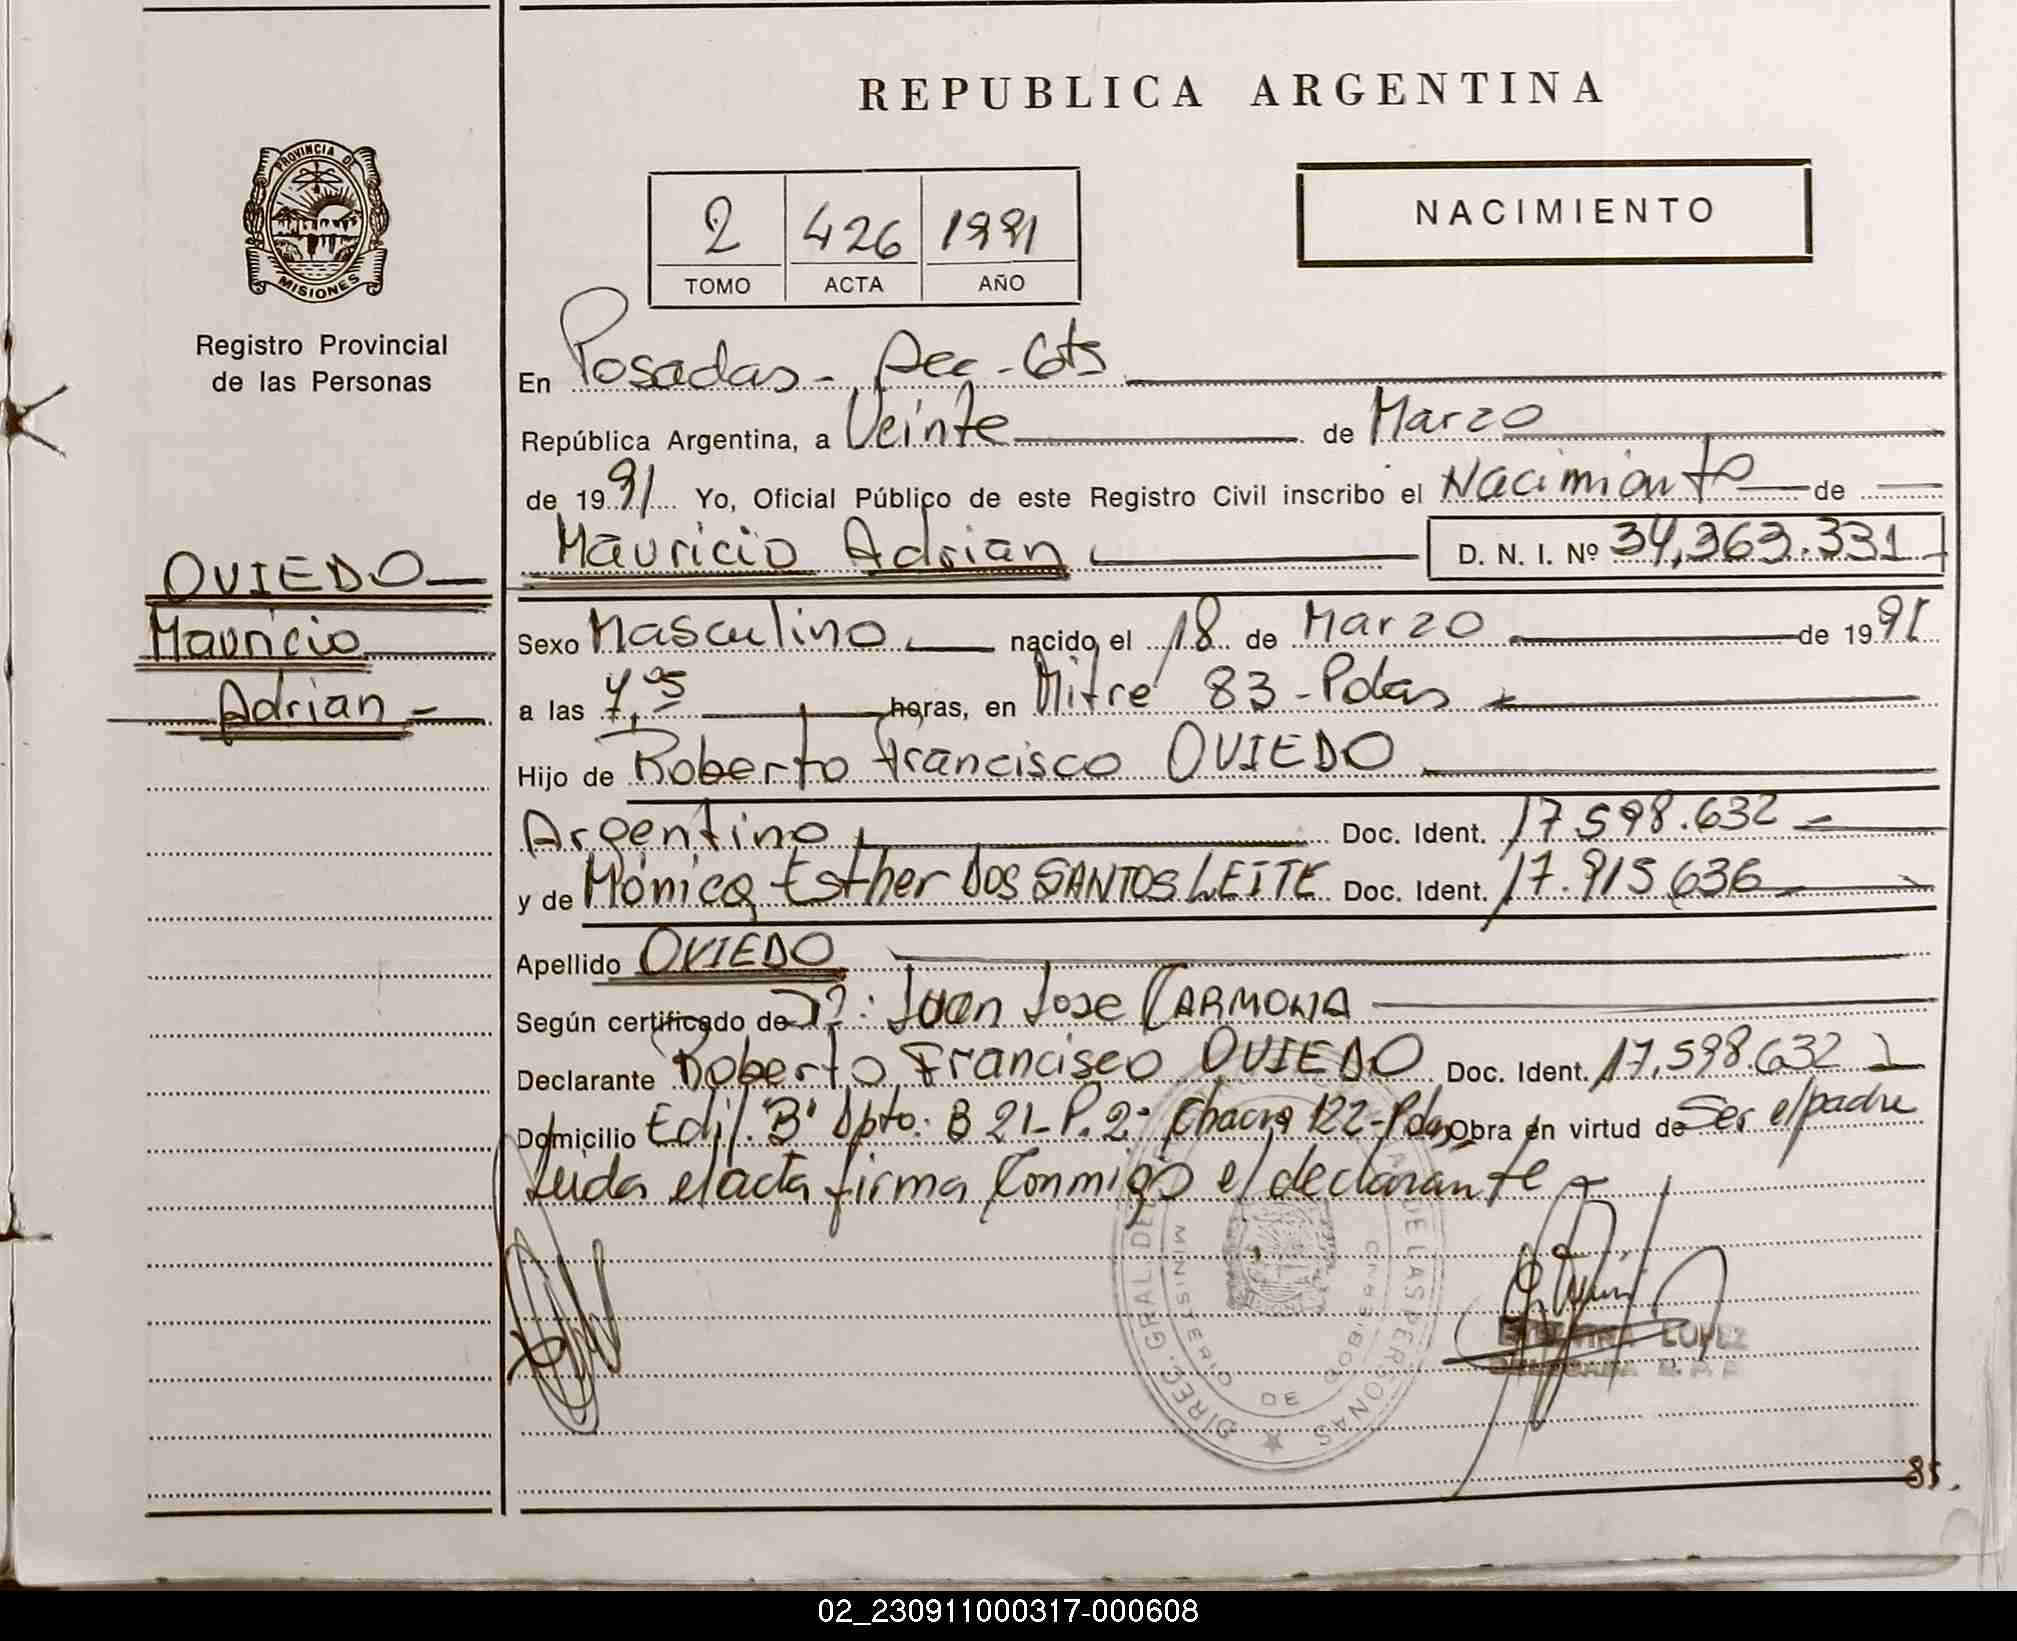 REPUBLICA ARGENTINA
PROVINCIA DE
MISIONES
Registro Provincial
de las Personas
2 426 1991
TOMO ACTA AÑO
NACIMIENTO
En Posadas -
República Argentina, a Veinte de Marzo
de 1991 Yo, Oficial Público de este Registro Civil inscribo el Nacimiento de
Mauricio Adrian D. N. I. Nº 34,363.331
OVIEDO
Mauricio
Adrian -
Sexo Masculino nacido el 18 de Marzo de 1991
a las horas, en Mitre 83 - Pdas
Hijo de Roberto Francisco OVIEDO
Argentino Doc. Ident. 17.598.632
y de Mónica Esther DOS SANTOS LEITE Doc. Ident. 17.915.636
Apellido OVIEDO
Según certificado de Juan Jose CARMONA
Declarante Roberto Francisco OVIEDO Doc. Ident. 17.598.632
Domicilio Edif. "B" Dpto. B 21 - P. 2º Chacra 122 - Pdas Obra en virtud de Ser el padre
Leida el acta firma Conmigo el declarante
DIREC. GRAL. DE LAS PERSONAS
MINISTERIO DE
LOPEZ
85.
02_230911000317-000608